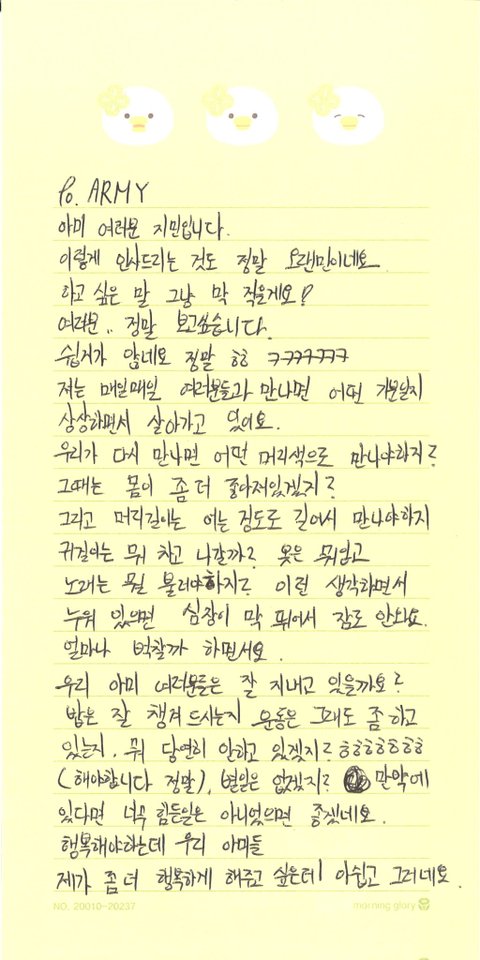 To. ARMY
아미 여러분 지민입니다.
이렇게 인사드리는 것도 정말 오랜만이네요
하고 싶은 말 그냥 막 적을게요?
여러분.. 정말 보고싶습니다.
쉽지가 않네요 정말 ㅎㅎ ㅋㅋㅋㅋㅋㅋㅋ
저는 매일매일 여러분들과 만나면 어떤 기분일지
상상하면서 살아가고 있어요.
우리가 다시 만나면 어떤 머리색으로 만나야하지?
그때는 몸이 좀 더 좋아져있겠지?
그리고 머리길이는 어느 정도로 길어서 만나야하지
귀걸이는 뭐 차고 나갈까? 옷은 뭐입고
노래는 뭘 불러야하지? 이런 생각하면서
누워 있으면 심장이 막 뛰어서 잠도 안와요.
얼마나 벅찰까 하면서요.
우리 아미 여러분들은 잘 지내고 있을까요?
밥은 잘 챙겨 드시는지 운동은 그래도 좀 하고
있는지. 뭐 당연히 안하고 있겠지? ㅎㅎㅎㅎㅎㅎㅎ
(해야합니다 정말), 별일은 없겠지? 만약에
있다면 너무 힘든일은 아니었으면 좋겠네요.
행복해야하는데 우리 아미들
제가 좀 더 행복하게 해주고 싶은데 아쉽고 그러네요.
NO. 20010-20237 morning glory